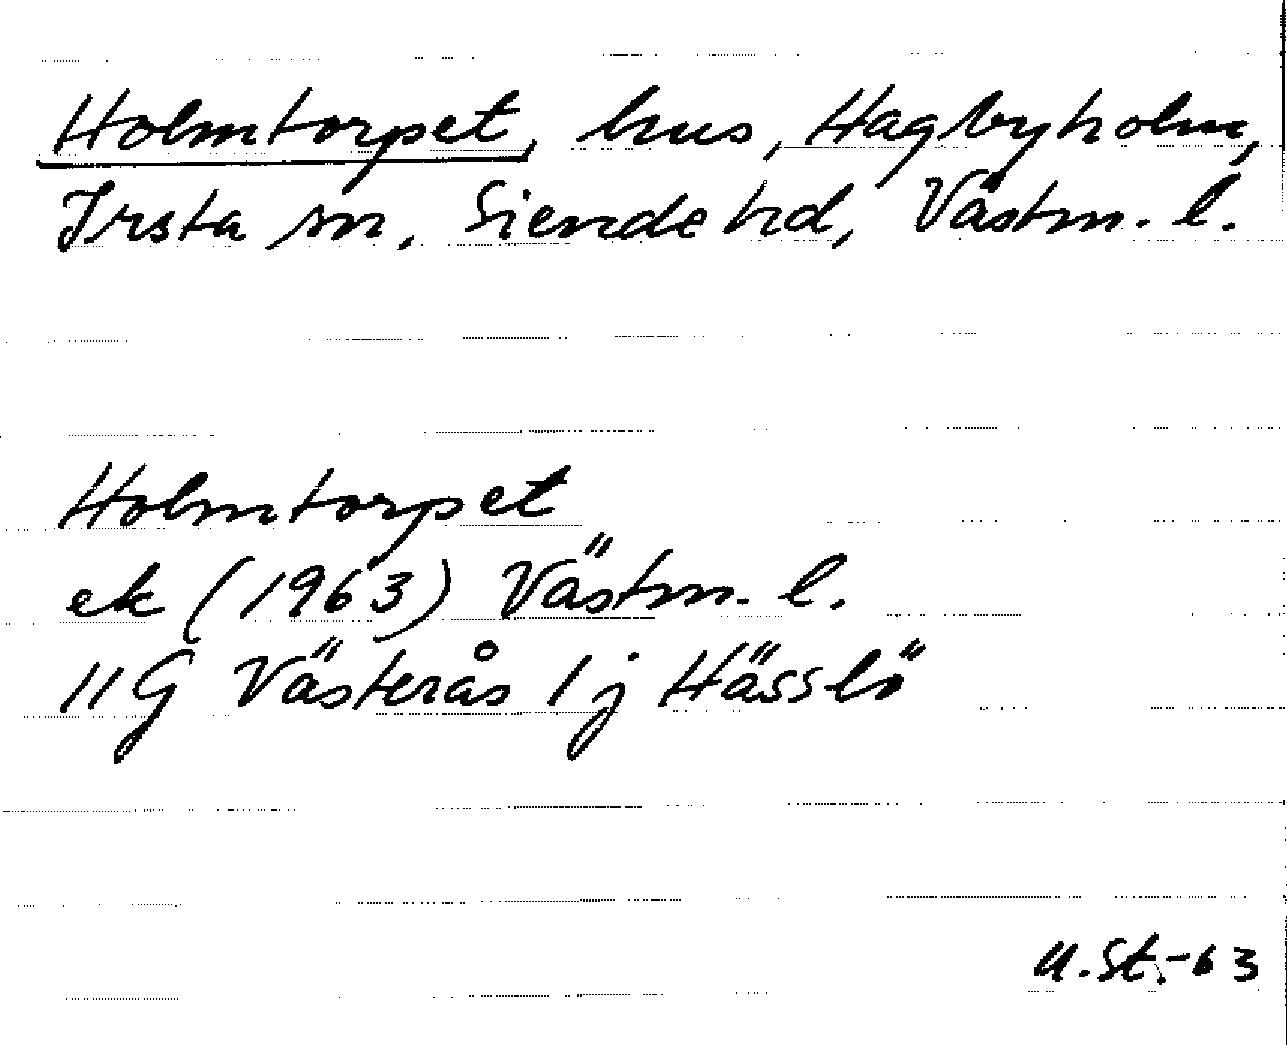 Holmtorpet, hus, Hagbyholm,
Irsta sn, Siende hd, Västm. l.
Holmtorpet
ek (1963) Västm. l.
11G Västerås 1j Hässlö
U.St.-63